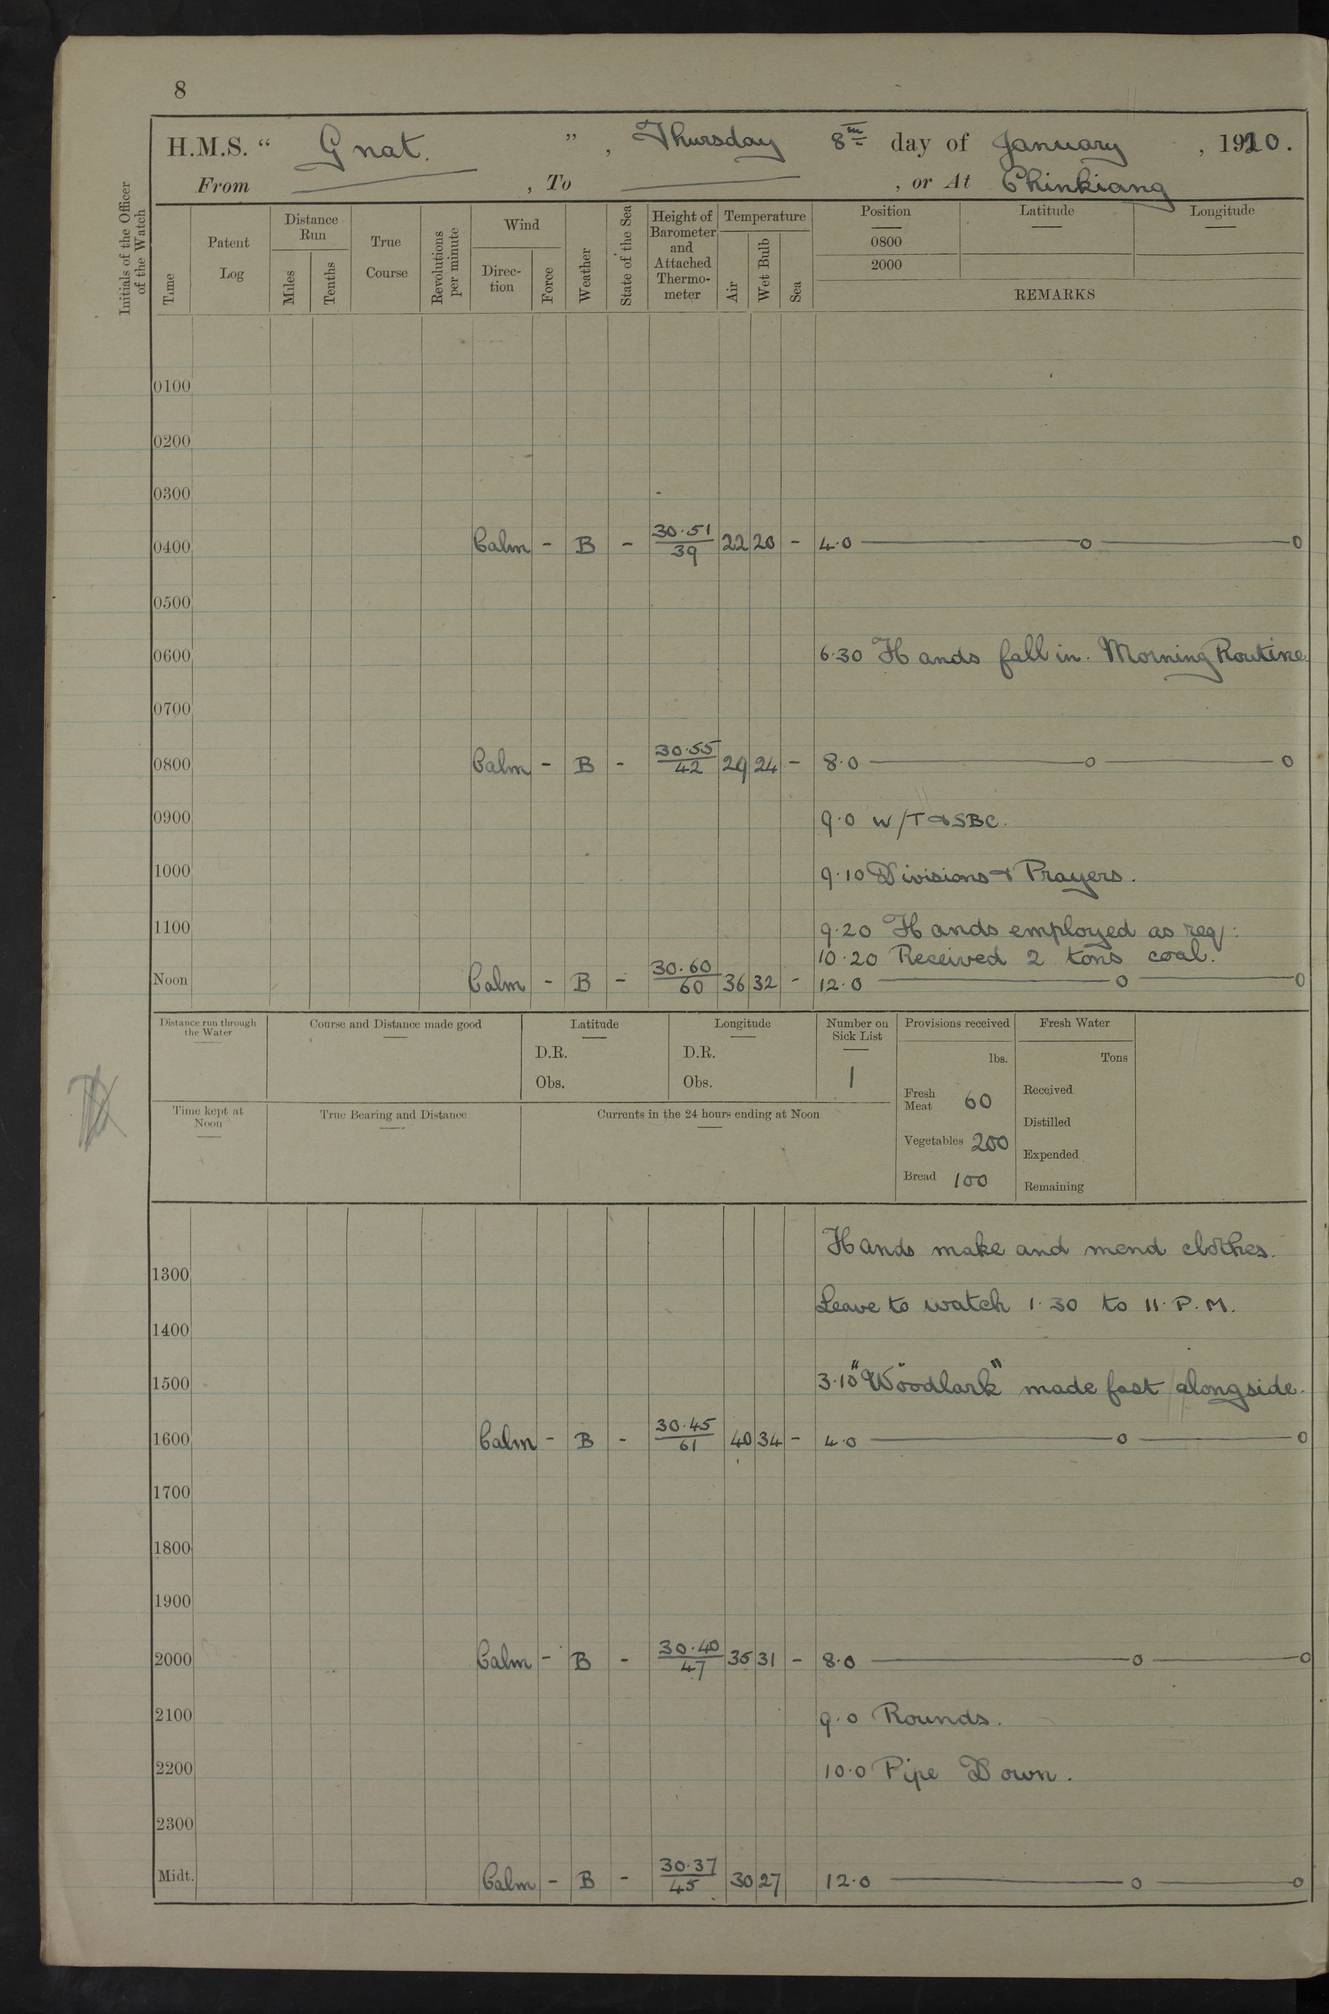 8
H.M.S. “ Gnat. ” , Thursday 8th day of January , 1920.
From , To , or At Chinkiang
Initials of the Officer
of the Watch
Time
Patent
Log
Distance
Run
Miles
Tenths
True
Course
Revolutions
per minute
Wind
Direc-
tion
Force
Weather
State of the Sea
Height of
Barometer
and
Attached
Thermo-
meter
Temperature
Air
Wet Bulb
Sea
Position
0800
2000
Latitude
Longitude
REMARKS
0100
0200
0300
0400 Calm - B - 30.51/39 22 20 - 4.0 ——— o ——— o
0500
0600 6.30 Hands fall in. Morning Routine
0700
0800 Calm - B - 30.55/42 29 24 - 8.0 ——— o ——— o
0900 9.0 W/T & SBC.
1000 9.10 Divisions & Prayers.
1100 9.20 Hands employed as req:
10.20 Received 2 tons coal.
Noon Calm - B - 30.60/60 36 32 - 12.0 ——— o ——— o
Distance run through
the Water
Course and Distance made good
Latitude
D.R.
Obs.
Longitude
D.R.
Obs.
Number on
Sick List
1
Provisions received
lbs.
Fresh
Meat 60
Vegetables 200
Bread 100
Fresh Water
Tons
Received
Distilled
Expended
Remaining
Time kept at
Noon
True Bearing and Distance
Currents in the 24 hours ending at Noon
Hands make and mend clothes.
1300
Leave to watch 1.30 to 11. P.M.
1400
1500 3.10 "Woodlark" made fast alongside.
1600 Calm - B - 30.45/61 40 34 - 4.0 ——— o ——— o
1700
1800
1900
2000 Calm - B - 30.40/47 35 31 - 8.0 ——— o ——— o
2100 9.0 Rounds.
2200 10.0 Pipe Down.
2300
Midt. Calm - B - 30.37/45 30 27 12.0 ——— o ——— o